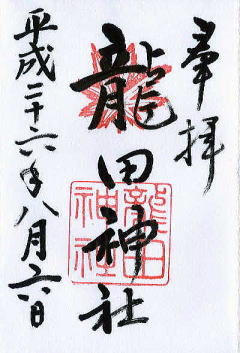 奉拝
龍田神社
龍田
神社
平成二十六年八月六日